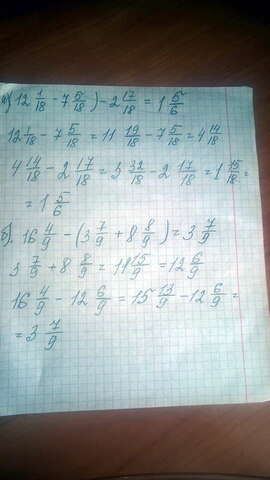 а) (12 1/18 - 7 5/18) - 2 17/18 = 1 5/6
12 1/18 - 7 5/18 = 11 19/18 - 7 5/18 = 4 14/18
4 14/18 - 2 17/18 = 3 32/18 - 2 17/18 = 1 15/18 =
= 1 5/6
б). 16 4/9 - (3 7/9 + 8 8/9) = 3 7/9
3 7/9 + 8 8/9 = 11 15/9 = 12 6/9
16 4/9 - 12 6/9 = 15 13/9 - 12 6/9 =
= 3 7/9